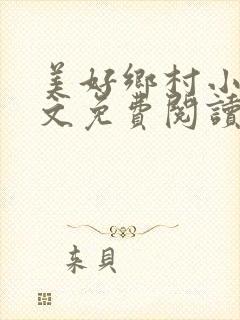 美好鄉村小
文免費閱讀
来貝